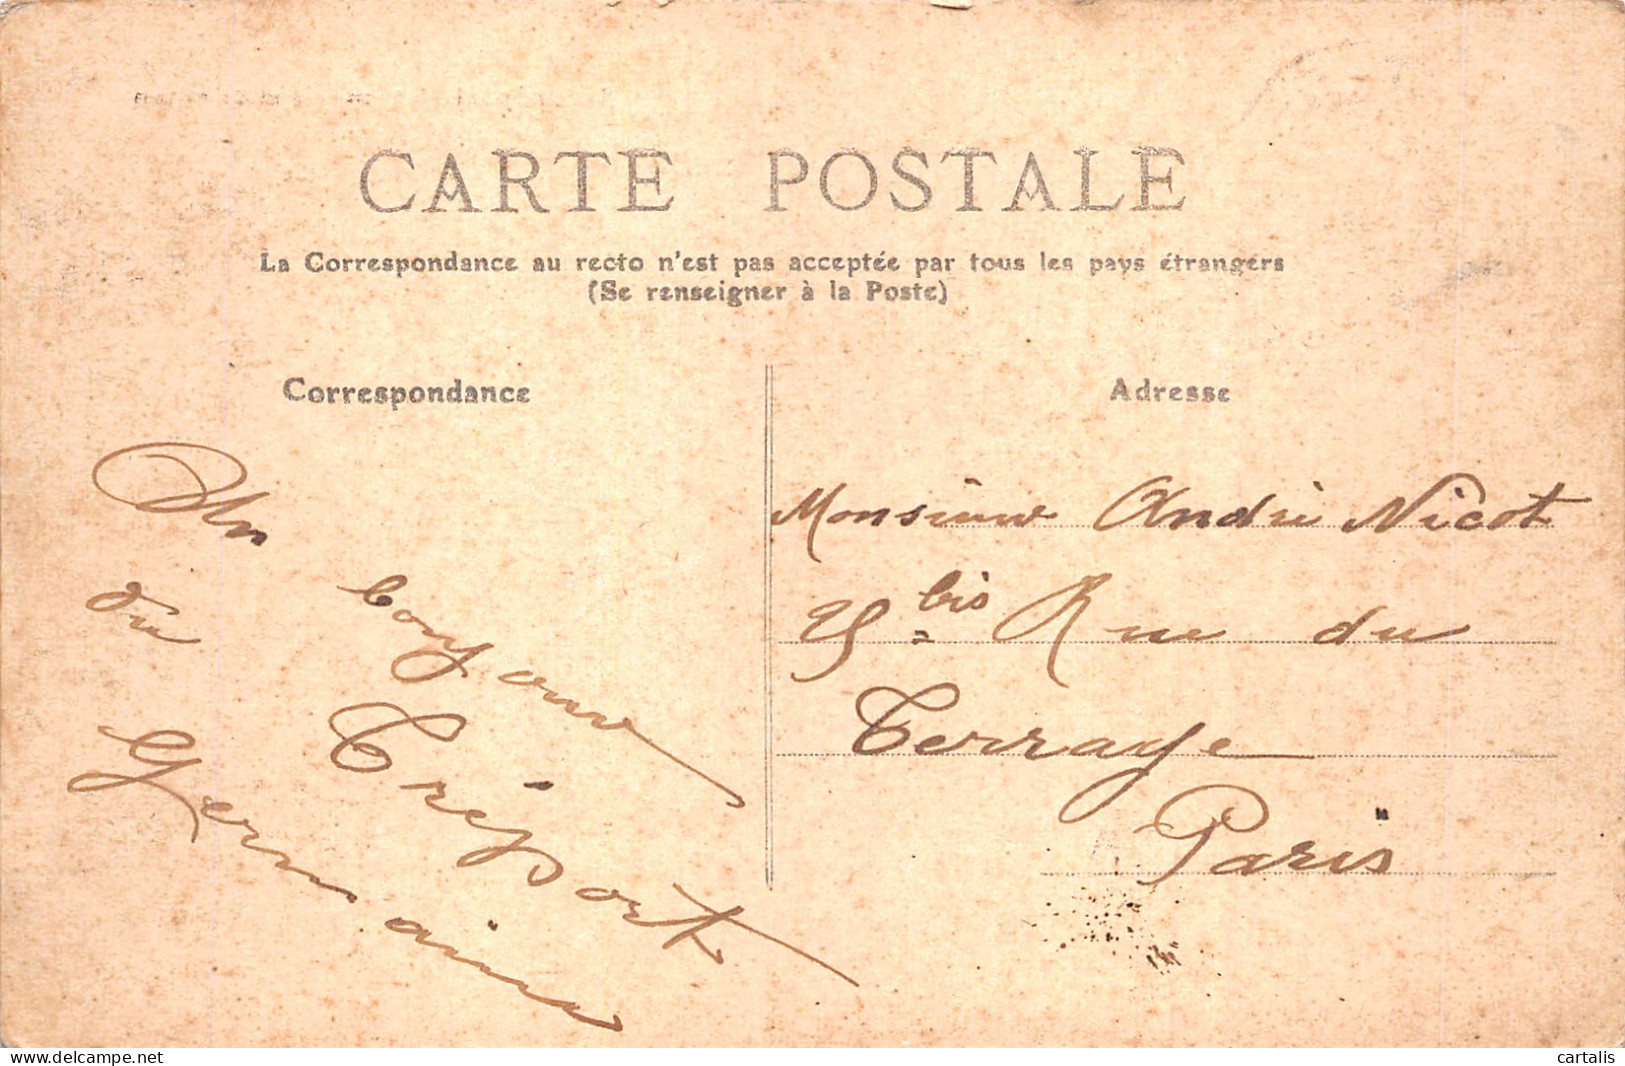 CARTE POSTALE
La Correspondance au recto n'est pas acceptée par tous les pays étrangers
(Se renseigner à la Poste)
Correspondance
Un bonjour
du Tréport
Germaine
Adresse
Monsieur André Nicot
25 bis Rue du
Terrage
Paris
www.delcampe.net
cartalis